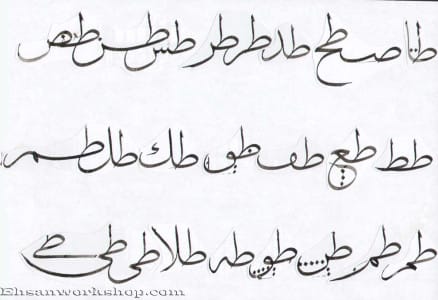 طا طح طد طر طر طس طس طص
طط طع طف طق طك طل طم
طم طم طن طو طه طلا طى طے
Ehsanworkshop.com